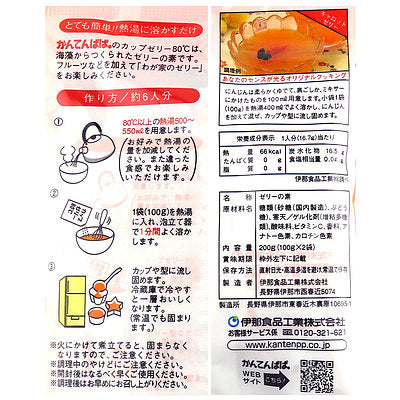 とても簡単!!熱湯に溶かすだけ
かんてんぱぱ®のカップゼリー80℃は、
海藻からつくられたゼリーの素です。
フルーツなどを加えて「わが家のゼリー」
をお楽しみください。
作り方/約6人分
①
80℃以上の熱湯500〜
550mlを用意します。
(お好みで熱湯の
量を加減してくださ
い。また違った
食感でお楽しみ
いただけます。)
②
1袋(100g)を熱湯
に入れ、泡立て器
で1分間よく溶かし
ます。
③
カップや型に流し
固めます。
冷蔵庫で冷やす
と一層おいしく
なります。
(常温でも固まり
ます。)
※火にかけて煮立てると、固まらなく
なりますので、ご注意ください。
※調理中のやけどにご注意ください。
※開封後はなるべく早くご使用ください。
※調理後はお早めにお召し上がりください。
キャロット
ゼリー
調理例
あなたのセンスが光るオリジナルクッキング
にんじんは柔らかくゆでて、裏ごしか、ミキサー
にかけたものを100ml用意します。小袋1袋
(100g)を熱湯400mlでよく溶かします。に
んじんを加えて混ぜ、カップや型に流し固めます。
栄養成分表示 1人分(16.7g)当たり
熱量 66kcal 炭水化物 16.5g
たんぱく質 0g 食塩相当量 0.04g
脂質 0g
伊那食品工業㈱調べ
名称 ゼリーの素
原材料名 糖類(砂糖(国内製造)、ぶどう
糖)、寒天/ゲル化剤(増粘多糖
類)、酸味料、ビタミンC、香料、ア
ナトー色素、カロチン色素
内容量 200g(100g×2袋)
賞味期限 枠外左下に記載
保存方法 直射日光・高温多湿を避け常温で保存
製造者 伊那食品工業㈱
長野県伊那市西春近5074
製造所 長野県伊那市東春近木裏原10695-1
伊那食品工業株式会社
お客様サービス係 0120-321-621
www.kantenpp.co.jp
かんてんぱぱ®
WEB
サイト
こちら!